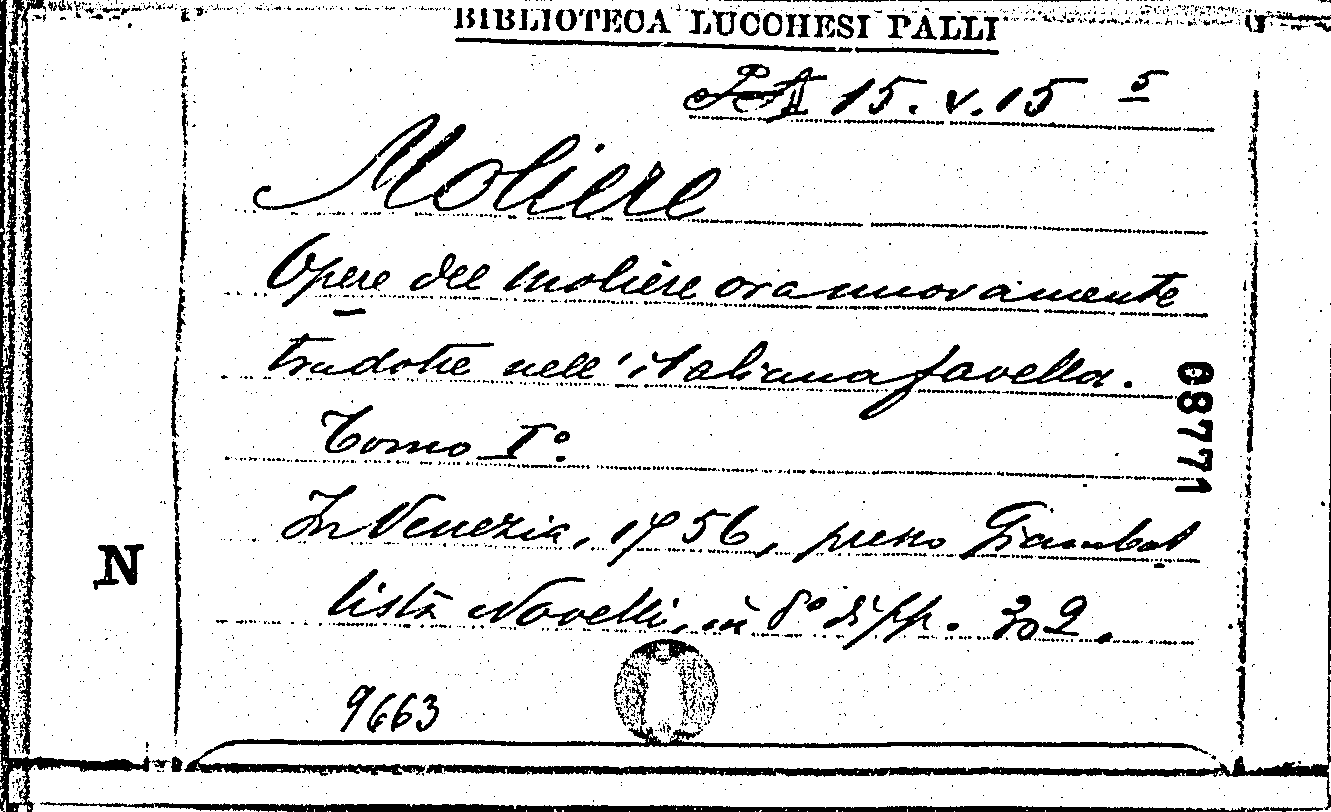 BIBLIOTECA LUCCHESI PALLI
15. V. 15 5
Moliere
Opere del Molière ora nuovamente
tradotte nell'italiana favella.
Tomo I°.
In Venezia, 1756, presso Giambat
tista Novelli, in 8° di pp. 302.
9663
N
68771